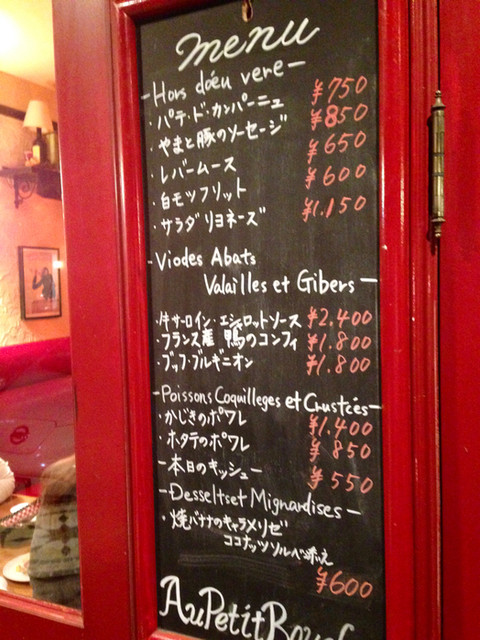 menu
-Hors dóeu vere-
・パテ・ド・カンパーニュ ¥750
・やまと豚のソーセージ ¥850
・レバームース ¥650
・白モツフリット ¥600
・サラダリヨネーズ ¥1.150
-Viodes Abats
Valailles et Gibers-
・牛サーロイン・エシャロットソース ¥2.400
・フランス産 鴨のコンフィ ¥1.800
・ブッフ・ブルギニオン ¥1.800
-Poissons Coquilleges et Crustcés-
・かじきのポワレ ¥1.400
・ホタテのポワレ ¥850
-本日のキッシュ- ¥550
-Desseltset Mignardises-
・焼バナナのキャラメリゼ
ココナッツソルベ添え
¥600
Au Petit